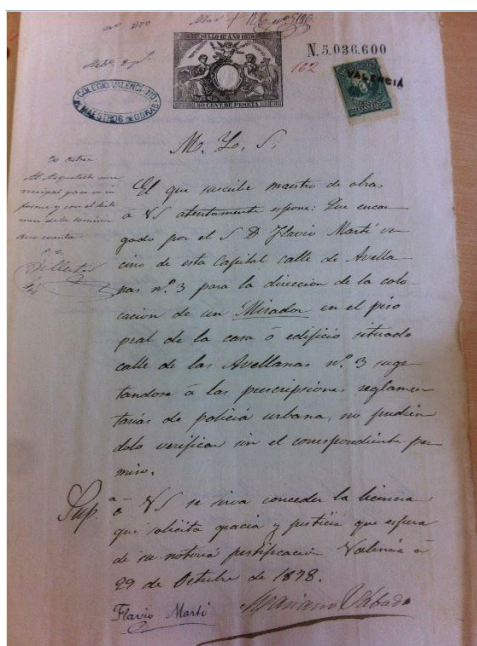 SELLO 11º AÑO 1878
N. 5,036,600
162
VALENCIA
COLEGIO VALENCIANO
DE MAESTROS DE OBRAS
M. Y. S.
El que suscribe maestro de obras
á VS atentamente espone: Que encar
gado por el S D Flavio Martí ve
cino de esta Capital calle de Avella
nas nº 3 para la direccion de la colo
cacion de un Mirador en el piso
pral de la casa ó edificio situado
calle de las Avellanas nº 3 suge
tandose á las prescripciones reglamen
tarias de policia urbana, no pudien
dolo verificar sin el correspondiente per
miso.
Sup. á VS se sirva conceder la licencia
que solicita gracia y justicia que espera
de su notoria justificacion Valencia á
29 de Octubre de 1878.
Flavio Martí
Mariano